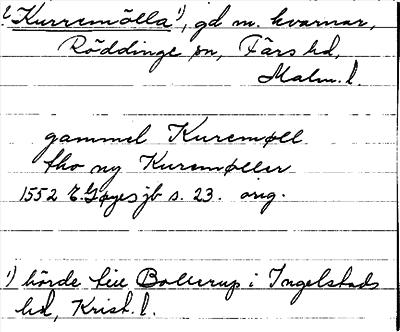 ? Kurremölla¹), gd m. kvarnar,
Röddinge sn, Färs hd,
Malm. l.
gammel Kuremøll
tho ny Kuremøller
1552 E. Gøyes jb s. 23. orig.
¹) hörde till Bollerup i Ingelstads
hd, Krist. l.